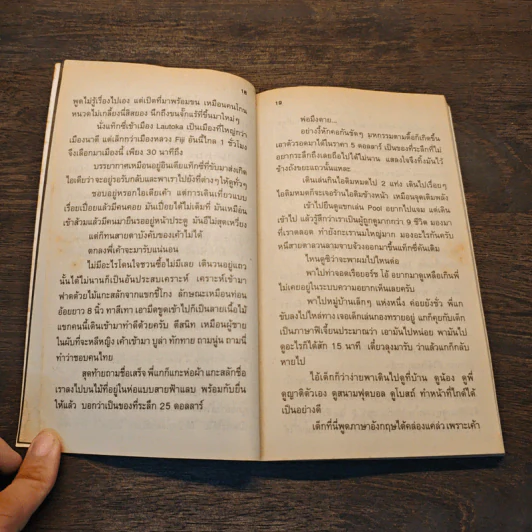 18
พูดไม่รู้เรื่องไปเอง แต่เปิดที่มาพร้อมขน เหมือนคนโกน
หนวดไม่เกลี้ยงนี่สิสยอง นึกถึงขนจั๊กแร้ที่ขึ้นมาใหม่ๆ
นั่งแท็กซี่เข้าเมือง Lautoka เป็นเมืองที่ใหญ่กว่า
เมืองนาดี แต่เล็กกว่าเมืองหลวง Fiji อันนี้ไกล 1 ชั่วโมง
จึงเลือกมาเมืองนี้ เพียง 30 นาทีถึง
บรรยากาศเหมือนอยู่อินเดียแท็กซี่ที่รับมาส่งเกิด
ไอเดียว่าจะอยู่รอรับกลับและพาเราไปยังที่ต่างๆให้ดูทั่วๆ
ขอบอยู่หรอกไอเดียเค้า แต่การเดินเที่ยวแบบ
เรื่อยเปื่อยแล้วมีคนคอย มันเปื่อยได้ไม่เต็มที่ มันเหมือน
เข้าส้วมแล้วมีคนมายืนรออยู่หน้าประตู มันอึไม่สุดเหวี่ยง
แต่ก็ทนสายตาบังคับของเค้าไม่ได้
ตกลงพี่เค้าจะมารับแน่นอน
ไม่มีอะไรโดนใจชวนซื้อไม่มีเลย เดินวนอยู่แถว
นั้นได้ไม่นานก็เป็นอันประสบเคราะห์ เคราะห์เข้ามา
ฟาดด้วยไม้แกะสลักจากแขกขี้โกง ลักษณะเหมือนท่อน
อ้อยยาว 8 นิ้ว ทาสีเทา เอามีดขูดเข้าไปก็เป็นลายเนื้อไม้
แขกคนนี้เดินเข้ามาทำดีด้วยครับ ตีสนิท เหมือนผู้ชาย
ในผับที่จะหลีหญิง เค้าเข้ามา บูล่า ทักทาย ถามนู่น ถามนี่
ทำว่าชอบคนไทย
สุดท้ายถามชื่อเสร็จ พี่แกก็แกะห่อผ้า แกะสลักชื่อ
เราลงไปบนไม้ที่อยู่ในห่อแบบสายฟ้าแลบ พร้อมกับยื่น
ให้แล้ว บอกว่าเป็นของที่ระลึก 25 ดอลลาร์
19
พ่อมึงตาย...
อย่างงี้หักคอกันชัดๆ มหกรรมตามตื๊อก็เกิดขึ้น
เอาตัวรอดมาได้ในราคา 5 ดอลลาร์ เป็นของที่ระลึกที่ไม่
อยากระลึกถึงเลยถือไปได้ไม่นาน แสลงใจจึงทิ้งมันไว้
ข้างถังขยะแถวนั้นแหละ
เดินเล่นกินไอติมหมดไป 2 แท่ง เดินไปเรื่อยๆ
ไอติมหมดก็จะเจอร้านไอติมข้างหน้า เหมือนจุดเติมพลัง
เข้าไปยืนดูแขกเล่น Pool อยากไปแจม แต่เดิน
เข้าไป แล้วรู้สึกว่าเราเป็นผู้ถูกดูมากกว่า 9 ชีวิต มองมา
ที่เราตลอด ทำยังกะเรานมใหญ่มาก มองอะไรกันครับ
หนีสายตาลวนลามจาบจ้วงออกมาขึ้นแท็กซี่คันเดิม
ไหนดูซิว่าจะพาผมไปไหนต่อ
พาไปท่าจอดเรือยอร์ช โอ้ อยากมาดูเหลือเกินพี่
ไม่เคยอยู่ในระบบความอยากเห็นเลยครับ
พาไปหมู่บ้านเล็กๆ แห่งหนึ่ง ค่อยยังชั่ว พี่แก
ขับลงไปไหล่ทาง เจอเด็กเล่นกองทรายอยู่ แกก็คุยกับเด็ก
เป็นภาษาฟิเจี้ยนประมาณว่า เอามันไปหน่อย พามันไป
ดูอะไรก็ได้สัก 15 นาที เดี๋ยวลุงมารับ ว่าแล้วแกก็กลับ
หายไป
ไอ้เด็กก็ว่าง่ายพาเดินไปดูที่บ้าน ดูน้อง ดูพี่
ดูญาติตัวเอง ดูสนามฟุตบอล ดูโบสถ์ ทำหน้าที่ไกด์ได้
เป็นอย่างดี
เด็กที่นี่พูดภาษาอังกฤษได้คล่องแคล่ว เพราะเค้า